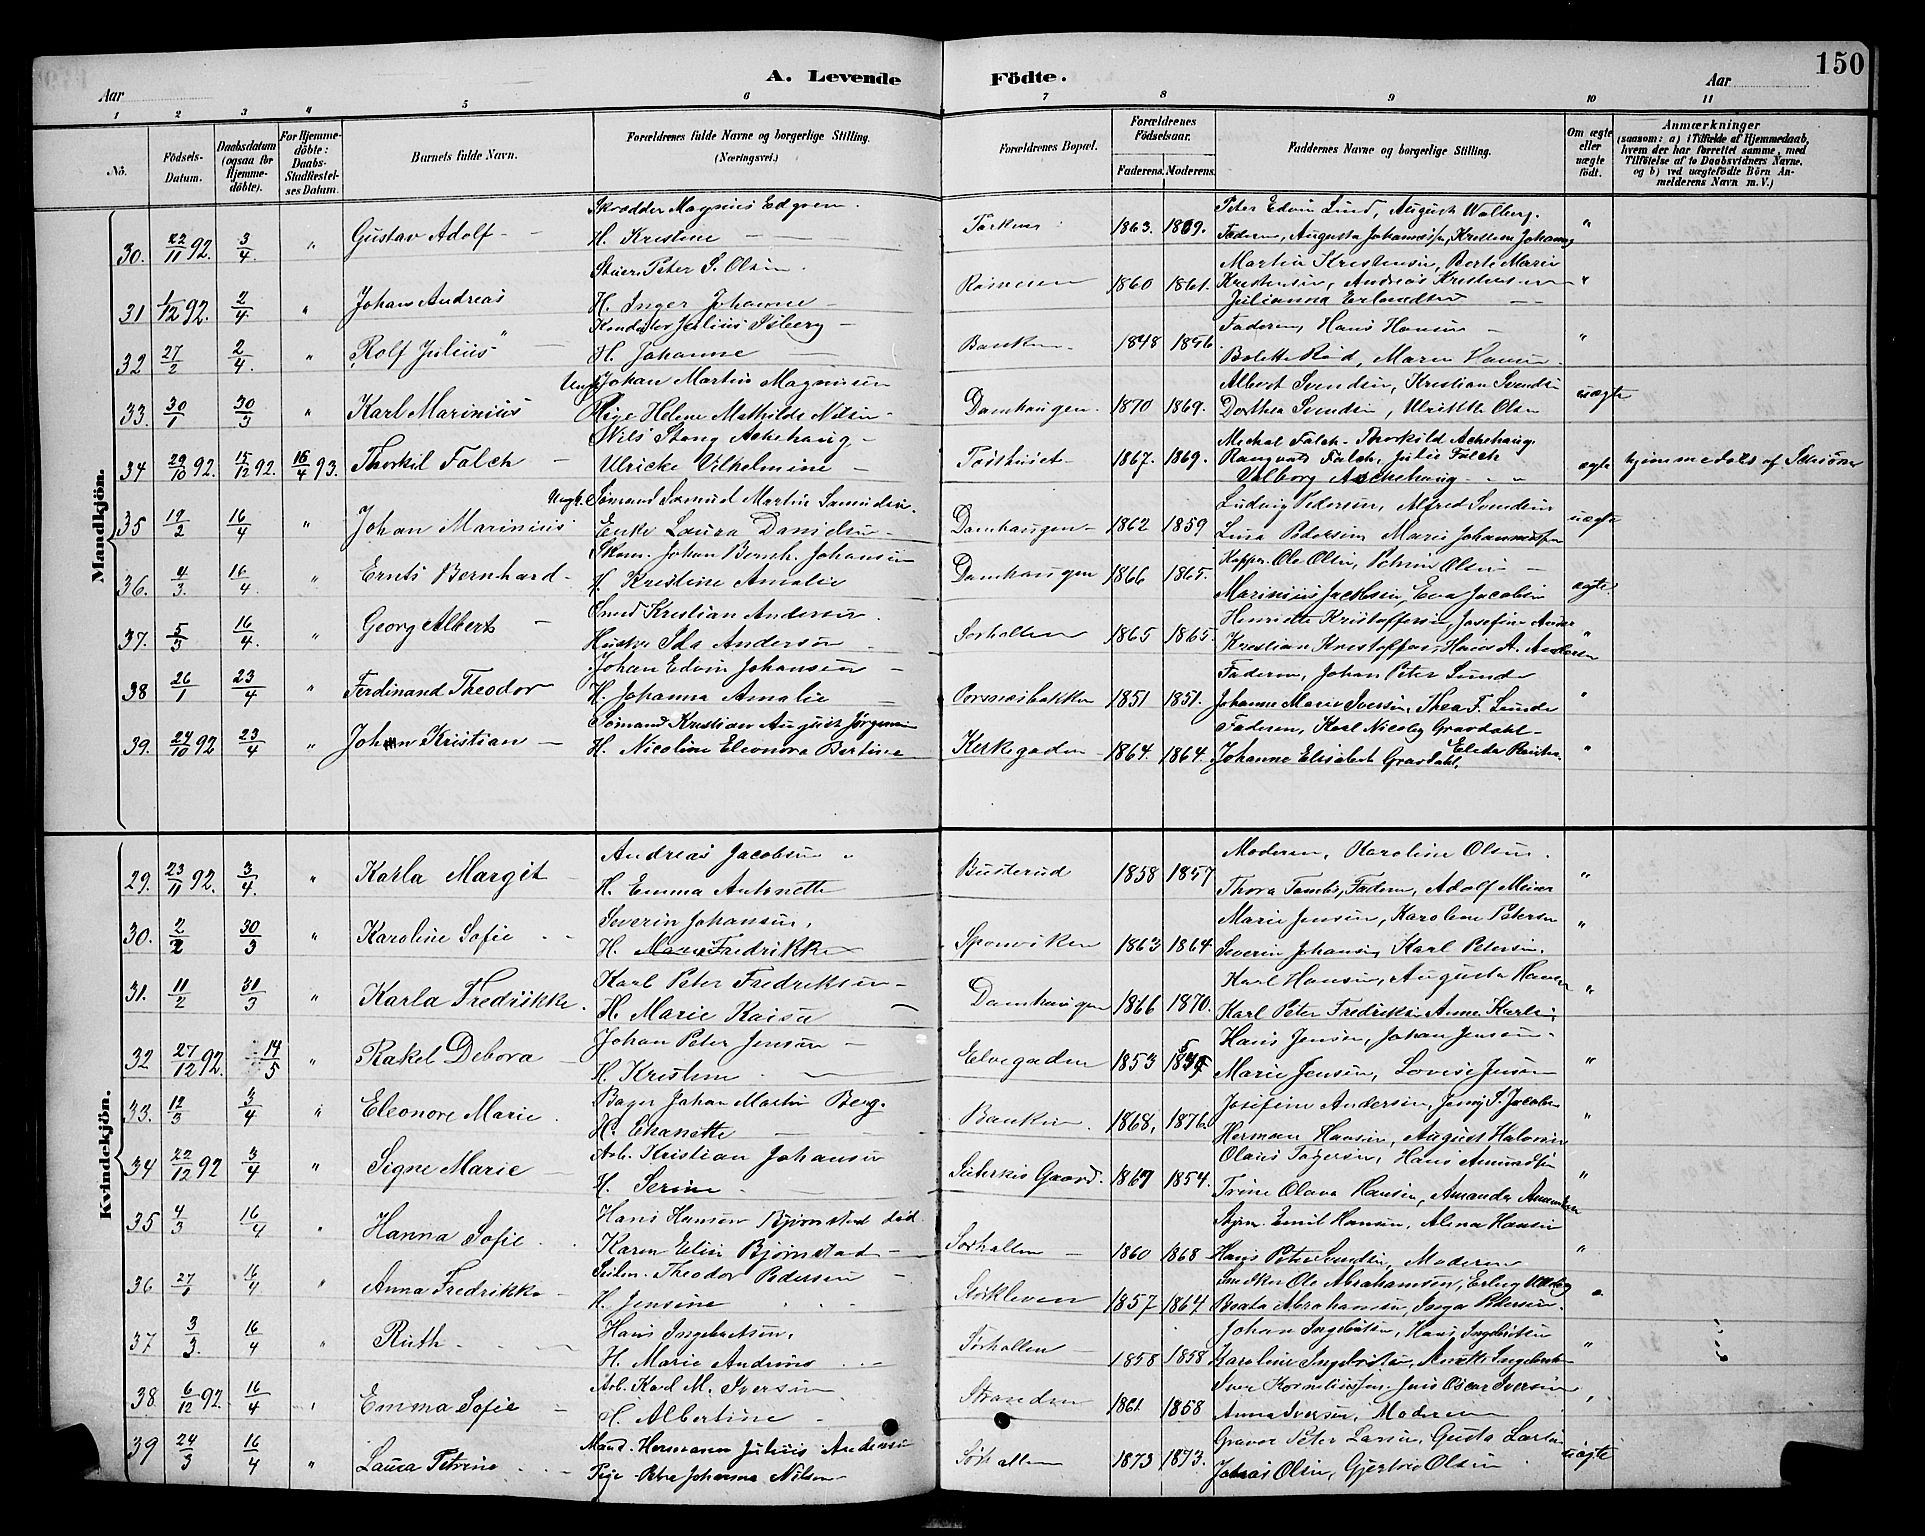 150
A. Levende Födte.
Aar
Aar
1 2 3 4 5 6 7 8 9 10 11
No.
Födsels-Datum.
Daabsdatum (ogsaa for Hjemmedöbte).
For Hjemmedöbte: Daabs-Stadfestelses Datum.
Barnets fulde Navn.
Forældrenes fulde Navne og borgerlige Stilling. (Næringsvei.)
Forældrenes Bopæl.
Forældrenes Födselsaar.
Faderens. Moderens.
Faddernes Navne og borgerlige Stilling.
Om ægte eller uægte födt.
Anmærkninger
(saasom: a) i Tilfælde af Hjemmedaab, hvem der har forrettet samme, med Tilföielse af to Daabsvidners Navne. og b) ved uægtefödte Börn Anmelderens Navn m. V.)
Mandkjön.
30. 22/11 92. 3/4 " Gustav Adolf
Skrædder Magnus Edgren.
H. Kristine
1863. 1869.
Peter Edvin Lund, August Walberg.
Faderen, Augusta Johannesen, Kristine
31 1/12 92. 2/4 " Johan Andreas
Peter S. Olsen.
H. Inger Johanne
1860 1861.
Martin Kristensen, Berte Marie
Kristensen, Andreas Kristensen "
Julianna Erlandsen
32 27/2 2/4. " Rolf Julius
Julius Isberg
H. Johanne
Banken 1848 1856
Faderen, Hans Hansen "
Bolette Rød, Maren Hansen.
33. 30/1 30/3 " Karl Marinius
Ungk. Johan Martin Magnusen
Pige Helene Mathilde Nilsen
Damhaugen. 1870 1869.
Albert Svendsen, Kristian Svendsen
Dorthea Svendsen, Ulrikke Olsen uægte
34 29/10 92. 15/12 92. 16/4 93. Thorkil Falch
Nils Stang Achehaug
Ulricke Vilhelmine
Posthuset 1867. 1869.
Michal Falch, Thorkild Achehaug.
Rangvald Falch, Julie Falch
Valborg Achehaug ægte hjemmedøbt af
35 19/2 16/4 " Johan Marinius
Ungk. Sømand Samuel Martin Samuelsen.
Enke Laura Danielsen
Damhaugen 1862 1859
Ludvig Pedersen, Alfred Svendsen
Lina Pedersen Marie Johannesen uægte
36. 4/3. 16/4. " Ernts Bernhard
Skom. Johan Bernh. Johansen
H. Kristine Amalie
Damhaugen 1866 1865.
Ole Olsen, Olsen
Marinius Jacobsen, Eva Jacobsen ægte
37. 5/3 16/4. " Georg Albert
Smed Kristian Andersen.
Hustru Ida Andersen
Sørhallen 1865 1865.
Henriette Kristoffersen, Josefine Ander
Kristian Kristoffersen, Hans A. Andersen "
38 26/1 23/4 " Ferdinand Theodor
Johan Edvin Johansen
H. Johanna Amalie
1851 1851.
Faderen, Johan Peter Lunde
Johanne Marie Iversen, Thea F. Lunde "
39. 24/10 92 23/4 " Johan Kristian
Sømand Kristian August Jørgensen
H. Nicoline Eleonora Bertine
Kirkegaden 1864. 1864.
Faderen, Karl Nicolay Gravdahl
Johanne Elisabet Gravdahl, "
Kvindekjön.
29. 23/11 92. 3/4. " Karla Margit
Andreas Jacobsen
H. Emma Antonette
Busterud 1858 1857
Moderen, Karoline Olsen.
Thora Tambs, Faderen, Adolf Meier "
30. 2/2 30/3 " Karoline Sofie
Severin Johansen,
H. Fredrikke
Sponviken 1863 1864
Marie Jensen, Karoline Petersen
Severin Johansen, Karl Petersen. "
31. 11/2 31/3 " Karla Fredrikke
Karl Peter Fredriksen
H. Marie Kaisa
Damhaugen 1866 1870.
Karl Hansen, Augusta Hansen "
Karl Peter Fredriksen, Anne
32 27/12 92. 14/5 " Rakel Debora
Johan Peter Jensen
H. Kristine
Elvegaden 1853
Hans Jensen, Johan Jensen
Marie Jensen, Lovise Jensen "
33. 12/3 3/4 " Eleonore Marie
Bager Johan Martin Berg.
H. Ekanette
Banken. 1868, 1876.
Josefine Andersen, Jenny S. Jacobsen
Herman Hansen, August Halvorsen "
34 22/12 92 3/4 " Signe Marie
Arb. Kristian Johansen
H. Serine
Gaard. 1867 1854.
Olaus Hans Amundsen
Trine Olava Hansen, Amanda Amundsen "
35 4/3 16/4 " Hanna Sofie
Hans Hansen Bjørnstad død
Karen Elise Bjørnstad
Sørhallen 1860 1868
Emil Hansen, Alma Hansen
Hans Peter Svendsen, Moderen "
36 27/1 16/4 " Anna Fredrikke
Theodor Pedersen
H. Jensine
Størkleven 1857 1864
Snedker Ole Abrahamsen,
Beata Abrahamsen, Inga Petersen. "
37 3/3. 16/4 " Ruth
Hans Ingebretsen,
H. Marie Andrine
Sørhallen 1858 1858
Johan Ingebretsen, Hans Ingebritsen
Karoline Ingebretsen, Anette Ingebretsen "
38 6/12 92. 16/4 " Emma Sofie
Arb. Karl M. Iversen
H. Albertine
Stranden 1861 1858
Iver Korneliussen, Jens Oscar Iversen
Anna Iversen, Moderen "
39 24/3 16/4 " Laura Petrine
Hermann Julius Andersen
Pige Petra Johanna Nilsen
Sørhallen 1873 1873.
Graver Peter Larsen, Gusta Larsen
Johas Olsen, Olsen uægte